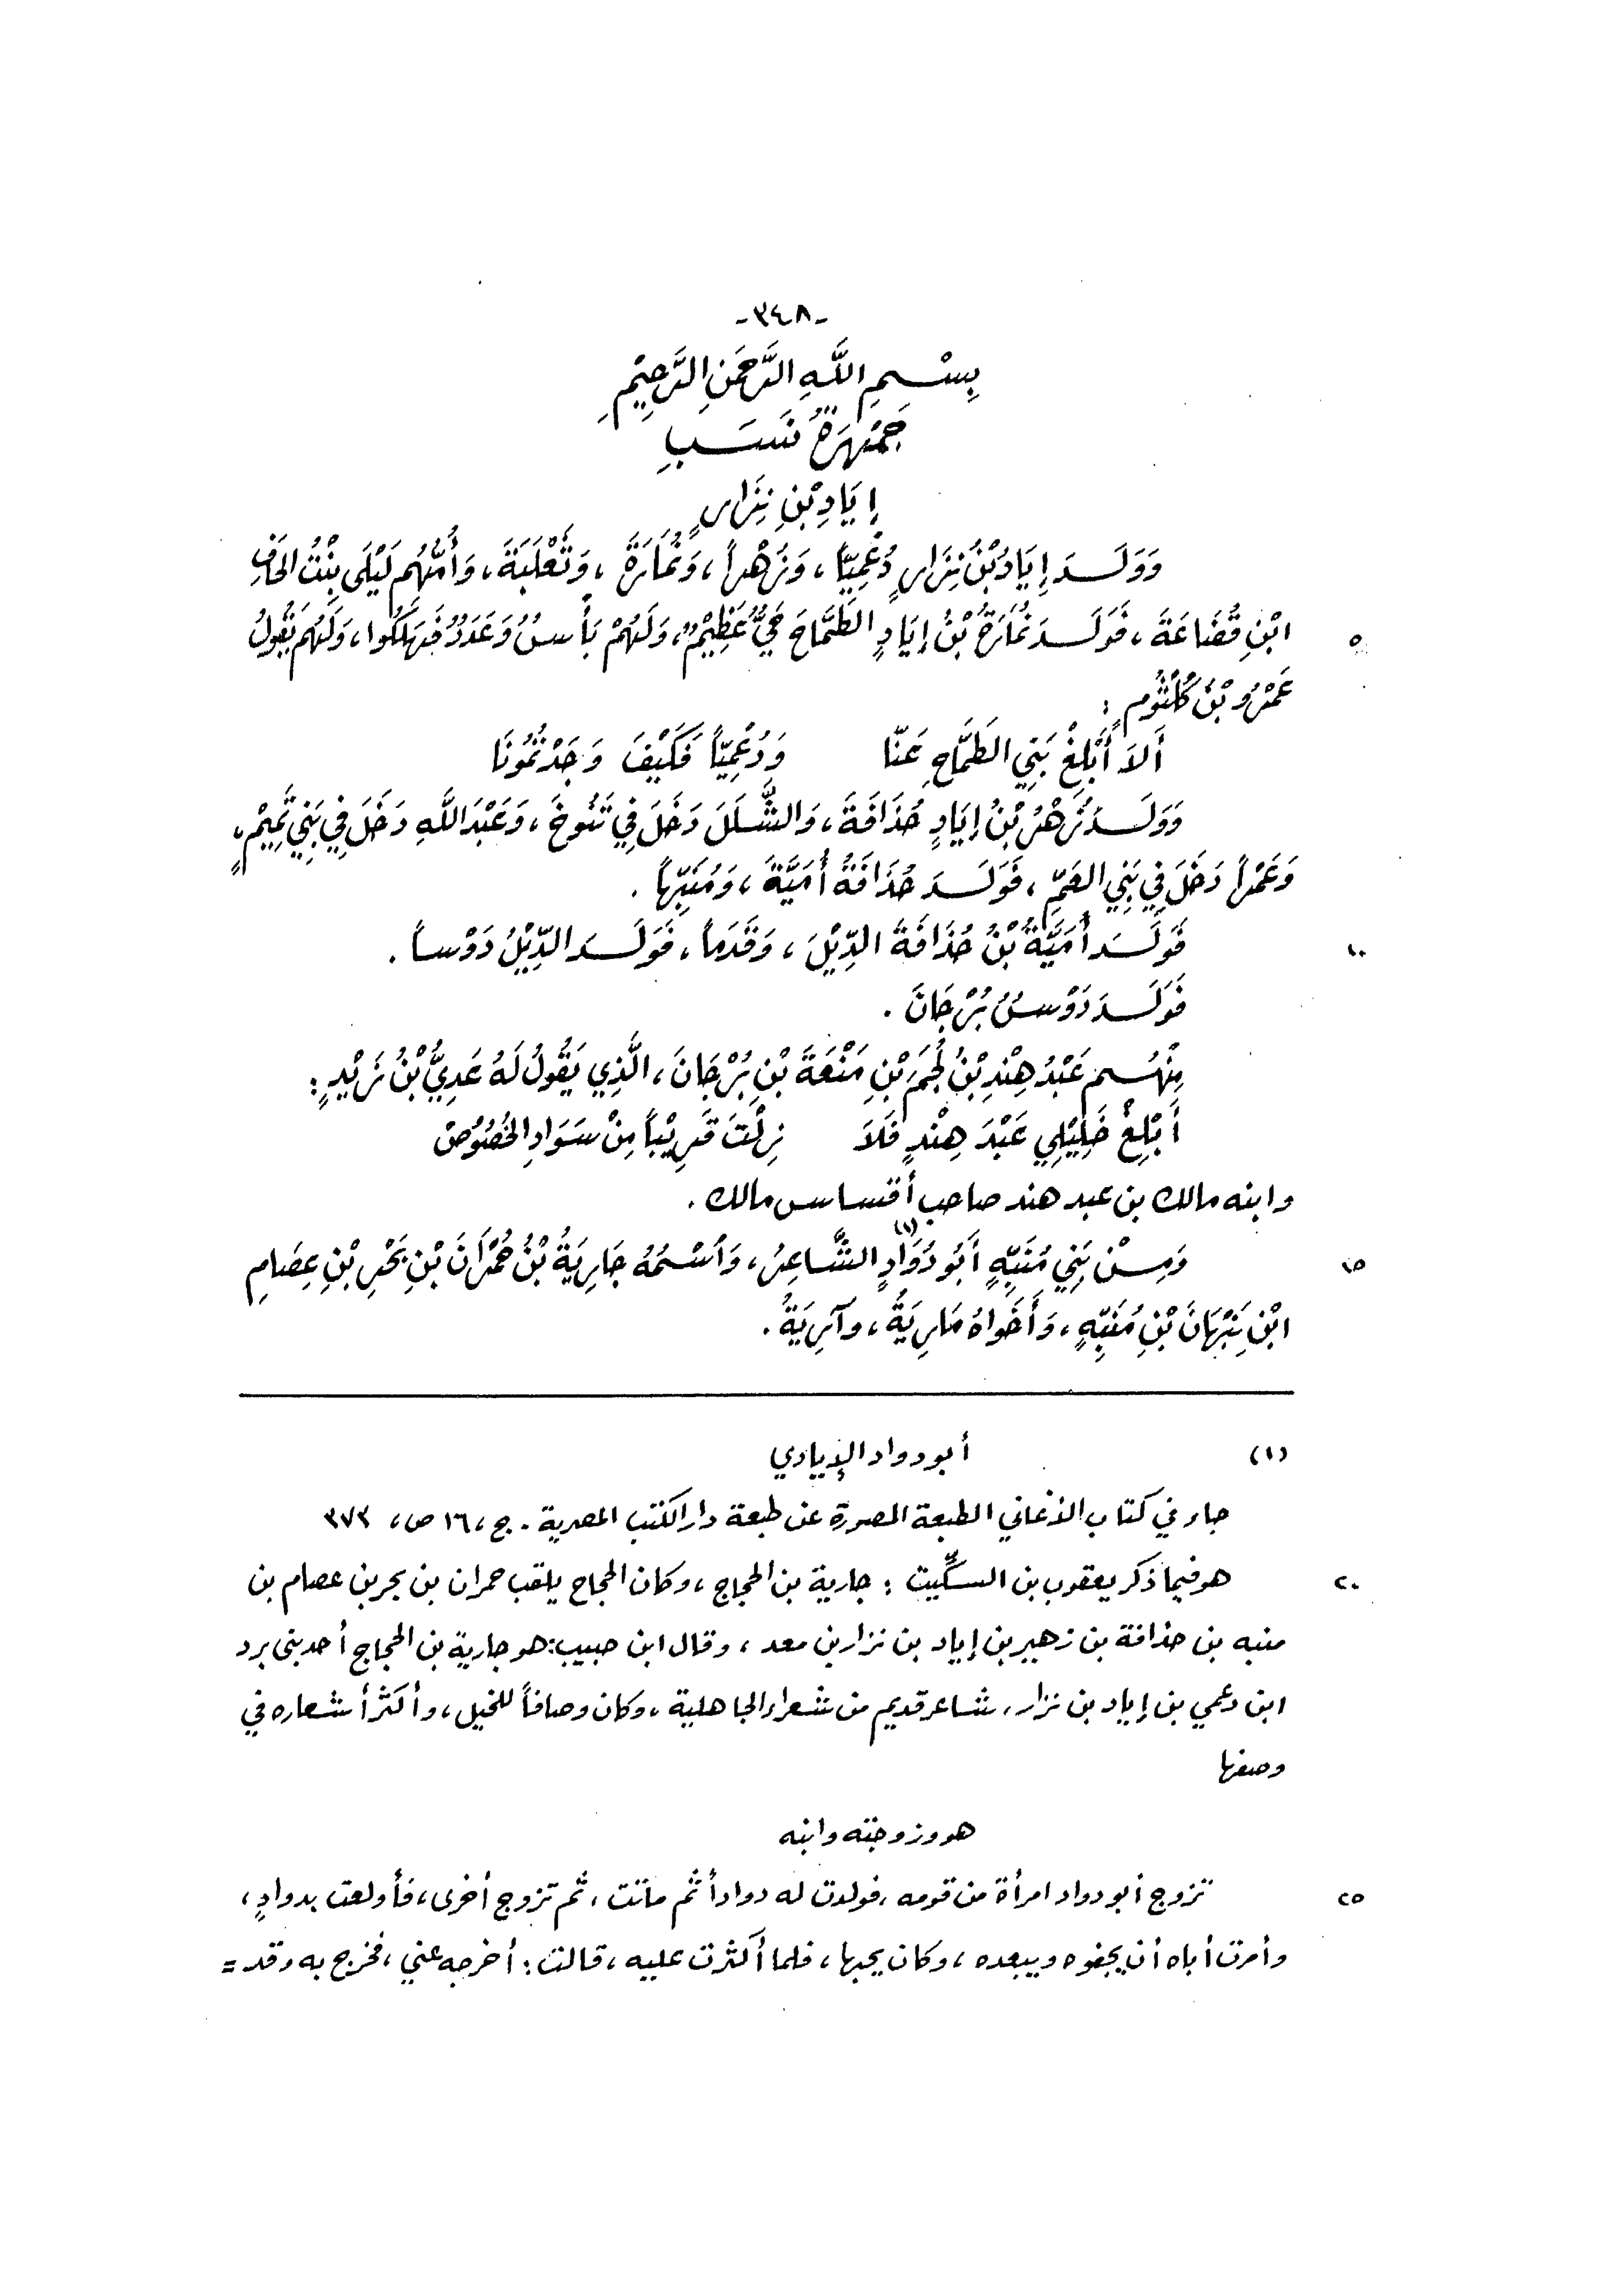 -٣٤٨-
بِسْمِ اللَّهِ الرَّحْمَنِ الرَّحِيْمِ
جَمْهَرَةُ نَسَبِ
إِيَادِ بْنِ نِزَارٍ
وَوَلَدَ إِيَادُ بْنُ نِزَارٍ دُعْمِيّاً، وَزُهْراً، وَنُمَارَةَ، وَثَعْلَبَةَ، وَأُمُّهُم لَيْلَى بِنْتُ الحَافِ
٥ ابْنِ قُضَاعَةَ، فَوَلَدَ نُمَارَةُ بْنُ إِيَادٍ الطَّمَّاحَ حَيٌّ عَظِيْمٌ، وَلَهُمْ بَأْسٌ وَعَدَدٌ فَهَلَكُوا، وَلَهُم يَقُولُ
عَمْرُو بْنُ كُلْثُومٍ:
أَلاَ أَبْلِغْ بَنِي الطَّمَّاحِ عَنّا وَدُعْمِيّاً فَكَيْفَ وَجَدْتُمُونَا
وَوَلَدَ زُهْرُ بْنُ إِيَادٍ حُذَافَةَ، وَالشَّلَلَ دَخَلَ فِي تَنُوخَ، وَعَبْدَ اللَّهِ دَخَلَ فِي بَنِي تَمِيْمٍ،
وَعَمْراً دَخَلَ فِي بَنِي العَمِّ، فَوَلَدَ حُذَافَةُ أُمَيَّةَ، وَمُنَبِّهاً.
١٠ فَوَلَدَ أُمَيَّةُ بْنُ حُذَافَةَ الدِّيْلَ، وَقَدَماً، فَوَلَدَ الدِّيْلُ دَوْساً.
فَوَلَدَ دَوْسٌ بُرْجَانَ.
مِنْهُم عَبْدُ هِنْدِ بْنُ لُجَمَ بْنِ مَنْعَةَ بْنِ بُرْجَانَ، الَّذِي يَقُولُ لَهُ عَدِيُّ بْنُ زَيْدٍ:
أَبْلِغْ خَلِيْلِي عَبْدَ هِنْدٍ فَلاَ زِلْتَ قَرِيْباً مِنْ سَوَادِ الخُصُوصْ
وابنه مالك بن عبد هند صاحب أقساس مالك.
١٥ وَمِنْ بَنِي مُنَبِّهٍ أَبُو دُوَادٍ (١) الشَّاعِرُ، وَاسْمُهُ جَارِيَةُ بْنُ حُمْرَانَ بْنِ بَحْرِ بْنِ عِصَامِ
ابْنِ نَبْهَانَ بْنِ مُنَبِّهٍ، وَأَخَوَاهُ مَارِيَةُ، وآرِيَةُ.
(١) أبو دواد الإيادي
جاء في كتاب الأغاني الطبعة المصورة عن طبعة دار الكتب المصرية. ج، ١٦ ص، ٣٧٣
٢٠ هو فيما ذكر يعقوب بن السكِّيت: جارية بن الحجاج، وكان الحجاج يلقب حمران بن بحر بن عصام بن
منبه بن حذافة بن زهير بن إياد بن نزار بن معد، وقال ابن حبيب: هو جارية بن الحجاج أحد بني برد
ابن دعمي بن إياد بن نزار، شاعر قديم من شعراء الجاهلية، وكان وصافاً للخيل، وأكثر أشعاره في
وصفها
هو وزوجته وابنه
٢٥ تزوج أبو دواد امرأة من قومه، فولدت له دواداً ثم ماتت، ثم تزوج أخرى، فأولعت بدوادٍ،
وأمرت أباه أن يجفوه ويبعده، وكان يحبها، فلما أكثرت عليه، قالت: أخرجه عني، فخرج به وقد =